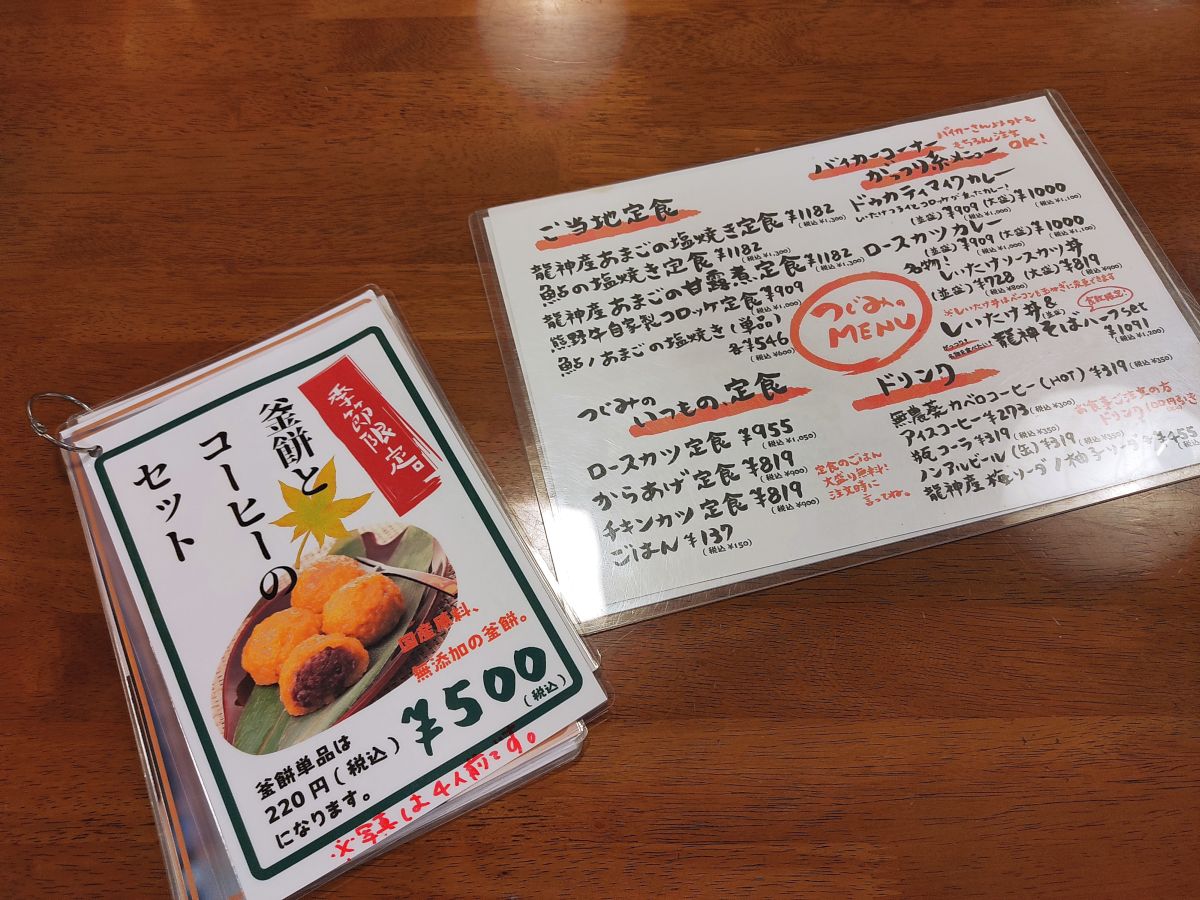 季節限定。
釜餅と
コーヒーの
セット
国産原料、
無添加の釜餅。
¥500
(税込)
釜餅単品は
220円(税込)
になります。
※写真は4人前です。
ご当地定食
龍神産あまごの塩焼き定食 ¥1182
(税込 ¥1,300)
鮎の塩焼き定食 ¥1182
(税込 ¥1,300)
龍神産あまごの甘露煮定食 ¥1182
(税込 ¥1,300)
熊野牛自家製コロッケ定食 ¥909
(税込 ¥1,000)
鮎/あまごの塩焼き(単品)
各¥546
(税込 ¥600)
つぐみの
いつもの、定食
ロースカツ定食 ¥955
(税込 ¥1,050)
からあげ定食 ¥819
(税込 ¥900)
チキンカツ定食 ¥819
(税込 ¥900)
ごはん ¥137
(税込 ¥150)
定食のごはん
大盛り無料!
注文時に
言ってね。
つぐみの
MENU
バイカーコーナー
がっつり系メニュー
もちろん注文
OK!
ドゥカティマイワカレー
(並盛)¥909 (大盛)¥1000
(税込 ¥1,000)
(税込 ¥1,100)
ロースカツカレー
(並盛)¥909 (大盛)¥1000
(税込 ¥1,000)
(税込 ¥1,100)
名物!
しいたけソースカツ丼
(並盛)¥728 (大盛)¥819
(税込 ¥800)
(税込 ¥900)
しいたけ丼(並盛)&
龍神そばハーフset
¥1091
(税込 ¥1,200)
ドリンク
無農薬カペロコーヒー(HOT) ¥319
(税込 ¥350)
アイスコーヒー ¥273
(税込 ¥300)
瓶コーラ ¥319
(税込 ¥350)
ノンアルビール(缶)¥319
(税込 ¥350)
龍神産梅ソーダ/柚子ソーダ ¥455
お食事ご注文の方
ドリンク100円引き